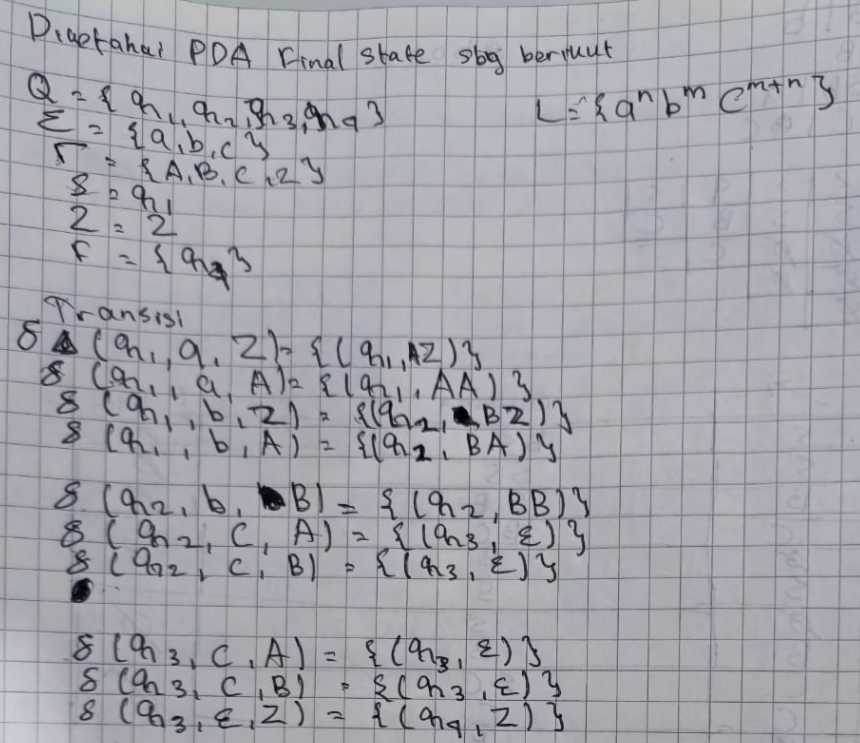 Diketahui PDA Final state sbg berikut
Q = {q1, q2, q3, q4} L = {a^n b^m c^{m+n}}
Σ = {a, b, c}
Γ = {A, B, C, Z}
S = q1
Z = Z
F = {q4}
Transisi
δ (q1, a, Z) = {(q1, AZ)}
δ (q1, a, A) = {(q1, AA)}
δ (q1, b, Z) = {(q2, BZ)}
δ (q1, b, A) = {(q2, BA)}
δ (q2, b, B) = {(q2, BB)}
δ (q2, c, A) = {(q3, ε)}
δ (q2, c, B) = {(q3, ε)}
δ (q3, c, A) = {(q3, ε)}
δ (q3, c, B) = {(q3, ε)}
δ (q3, ε, Z) = {(q4, Z)}